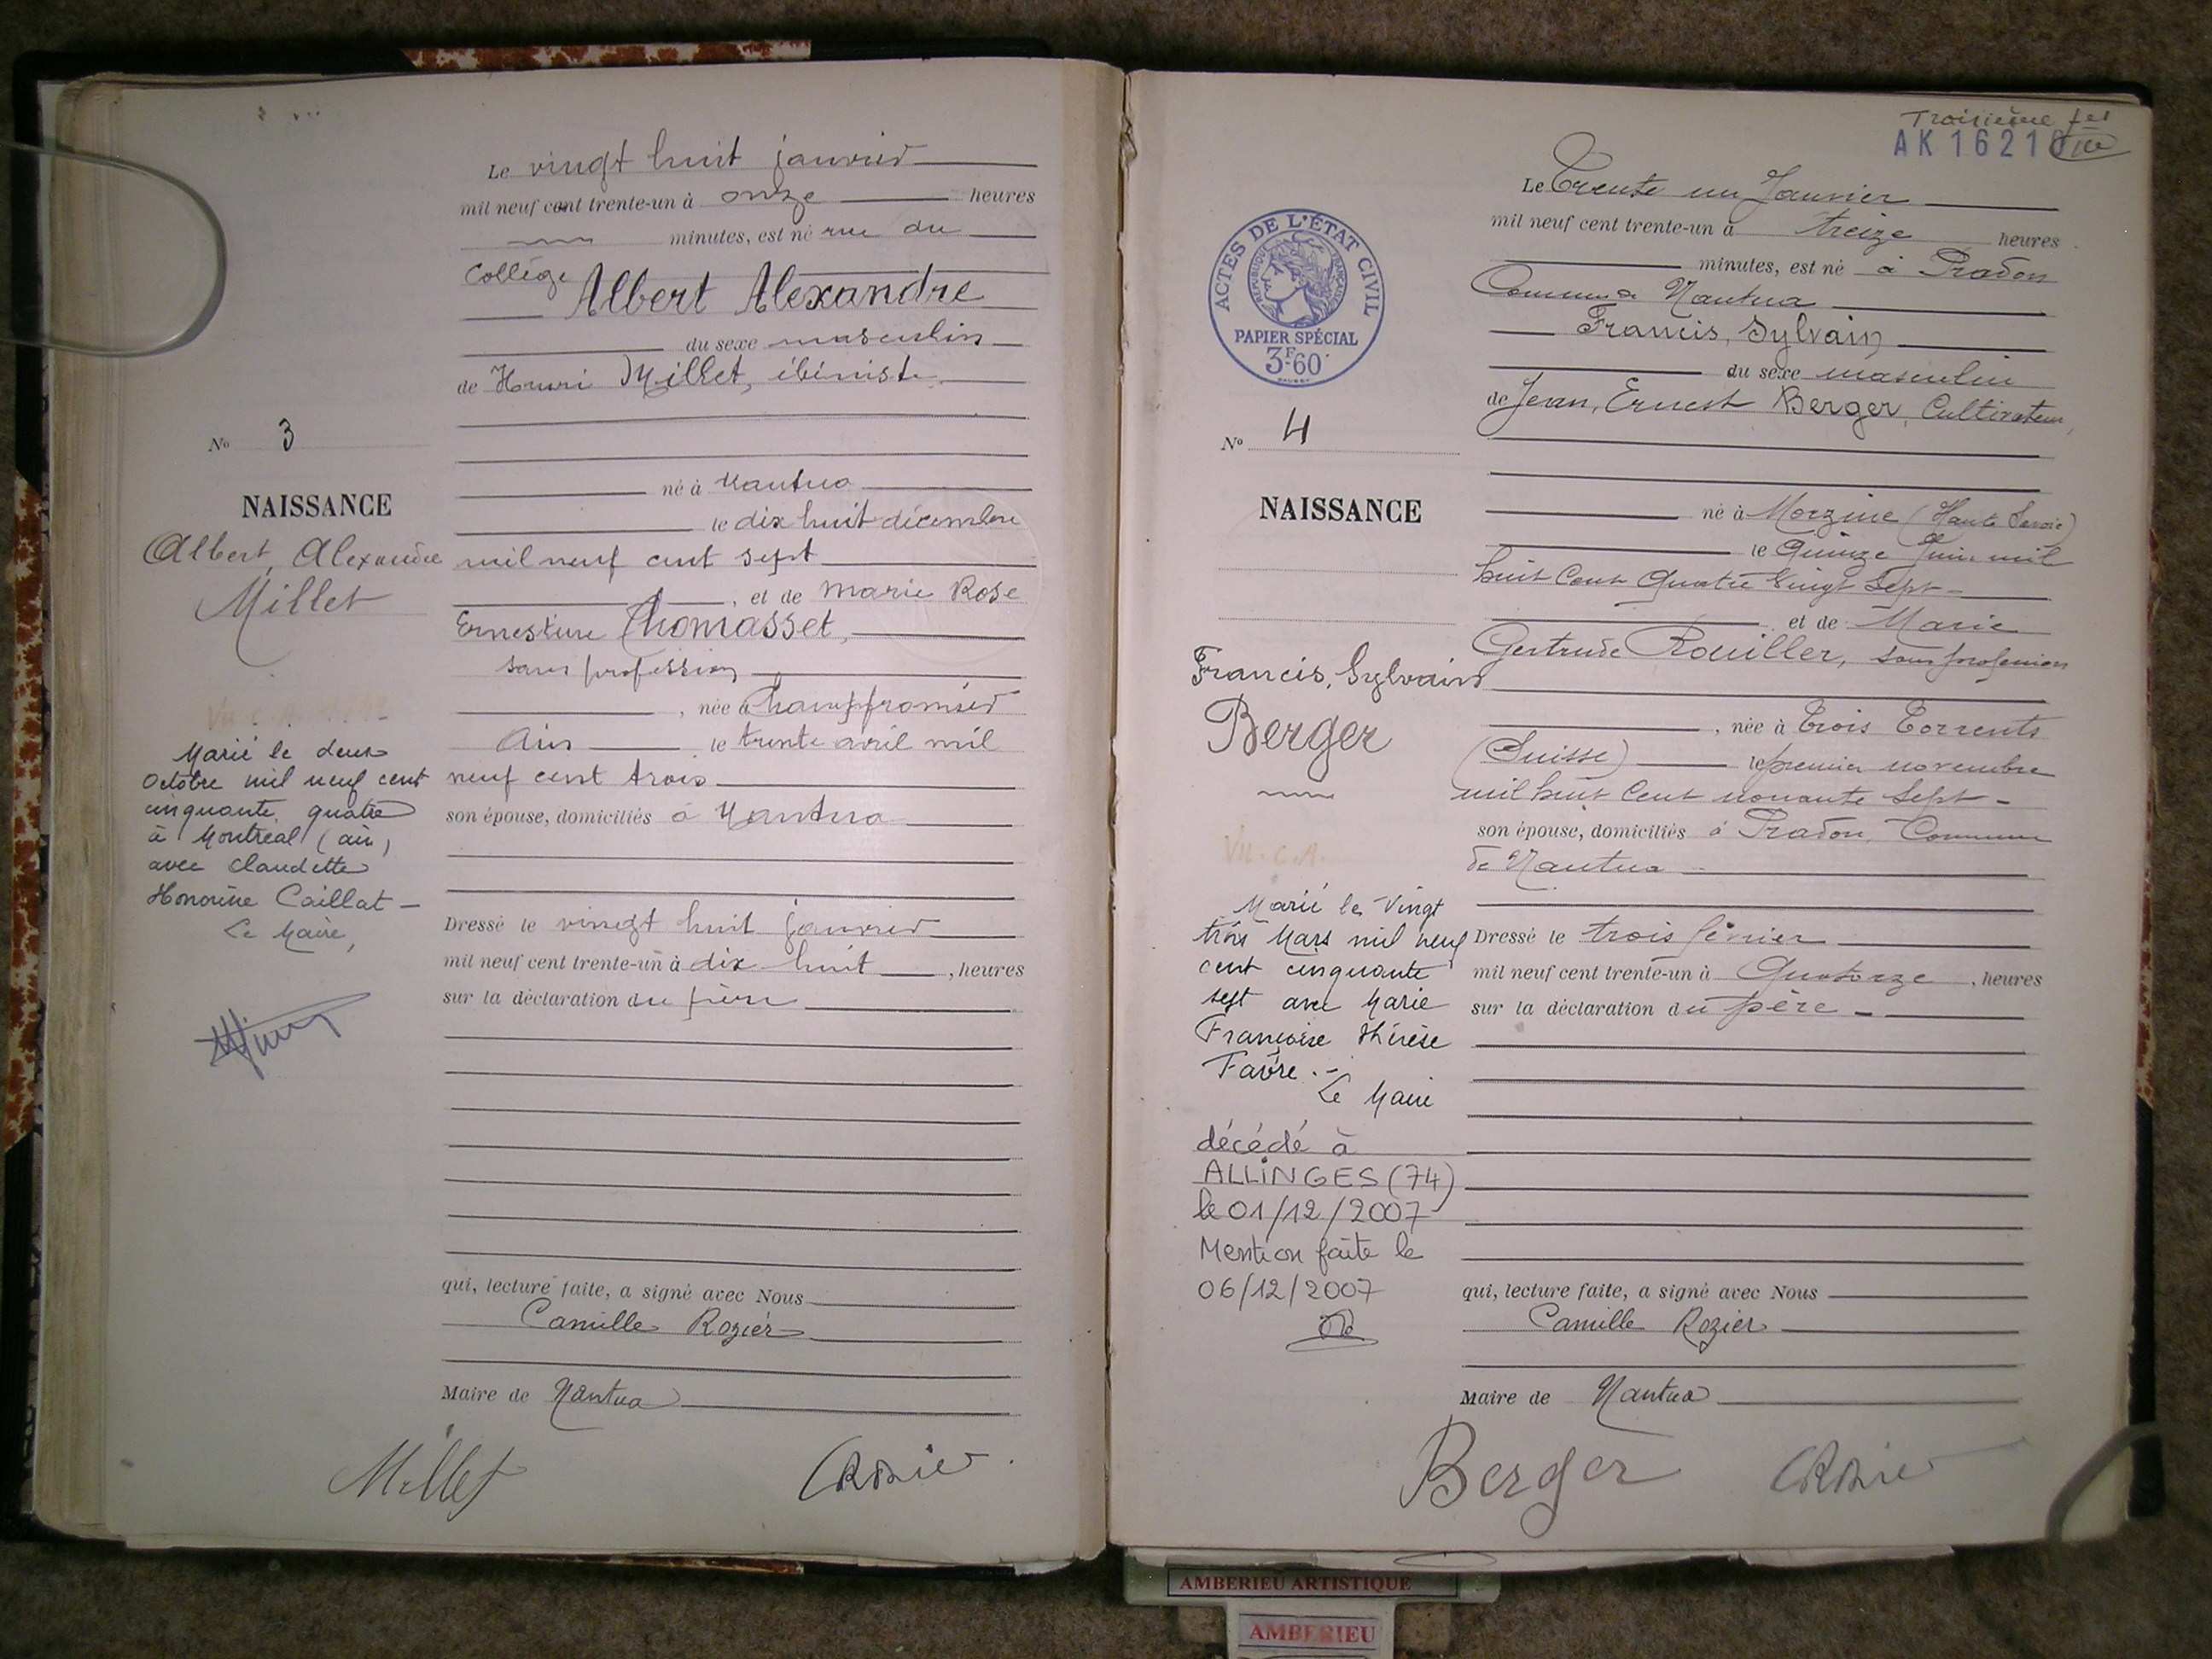 Le vingt huit janvier
mil neuf cent trente-un à onze heures
minutes, est né rue du
Collège
Albert Alexandre
du sexe masculin
de Henri Millet, ébéniste
né à Nantua
le dix huit décembre
mil neuf cent sept
, et de Marie Rose
Ernestine Thomasset,
sans profession
, née à Champfromier
Ain le trente avril mil
neuf cent trois
son épouse, domiciliés à Nantua
Dressé le vingt huit janvier
mil neuf cent trente-un à dix huit , heures
sur la déclaration du père
qui, lecture faite, a signé avec Nous
Camille Rozier
Maire de Nantua
Millet
CRozier
No 3
NAISSANCE
Albert, Alexandre
Millet
Marié le deux
Octobre mil neuf cent
cinquante quatre
à Montréal (ain)
avec Claudette
Honorine Caillat -
Le Maire,
Troisième
AK 1621
Le Trente un Janvier
mil neuf cent trente-un à treize heures
minutes, est né à Pradon
Commune Nantua
Francis, Sylvain
du sexe masculin
de Jean, Ernest Berger, Cultivateur,
né à Morzine (Haute Savoie)
le Quinze Juin mil
huit Cent Quatre Vingt Sept -
et de Marie
Gertrude Rouiller, sans profession
, née à Trois Torrents
(Suisse) le premier novembre
mil huit Cent nonante Sept -
son épouse, domiciliés à Pradon, Commune
de Nantua
Dressé le trois février
mil neuf cent trente-un à Quatorze , heures
sur la déclaration du père -
qui, lecture faite, a signé avec Nous
Camille Rozier
Maire de Nantua
Berger
CRozier
ACTES DE L'ÉTAT CIVIL
RÉPUBLIQUE FRANÇAISE
PAPIER SPÉCIAL
3F60
No 4
NAISSANCE
Francis, Sylvain
Berger
Vu. C.A.
Marié le Vingt
trois Mars mil neuf
cent cinquante
sept avec Marie
Françoise Thérèse
Favre.-
Le Maire
décédé à
ALLINGES (74)
le 01/12/2007
Mention faite le
06/12/2007
AMBERIEU ARTISTIQUE
AMBERIEU